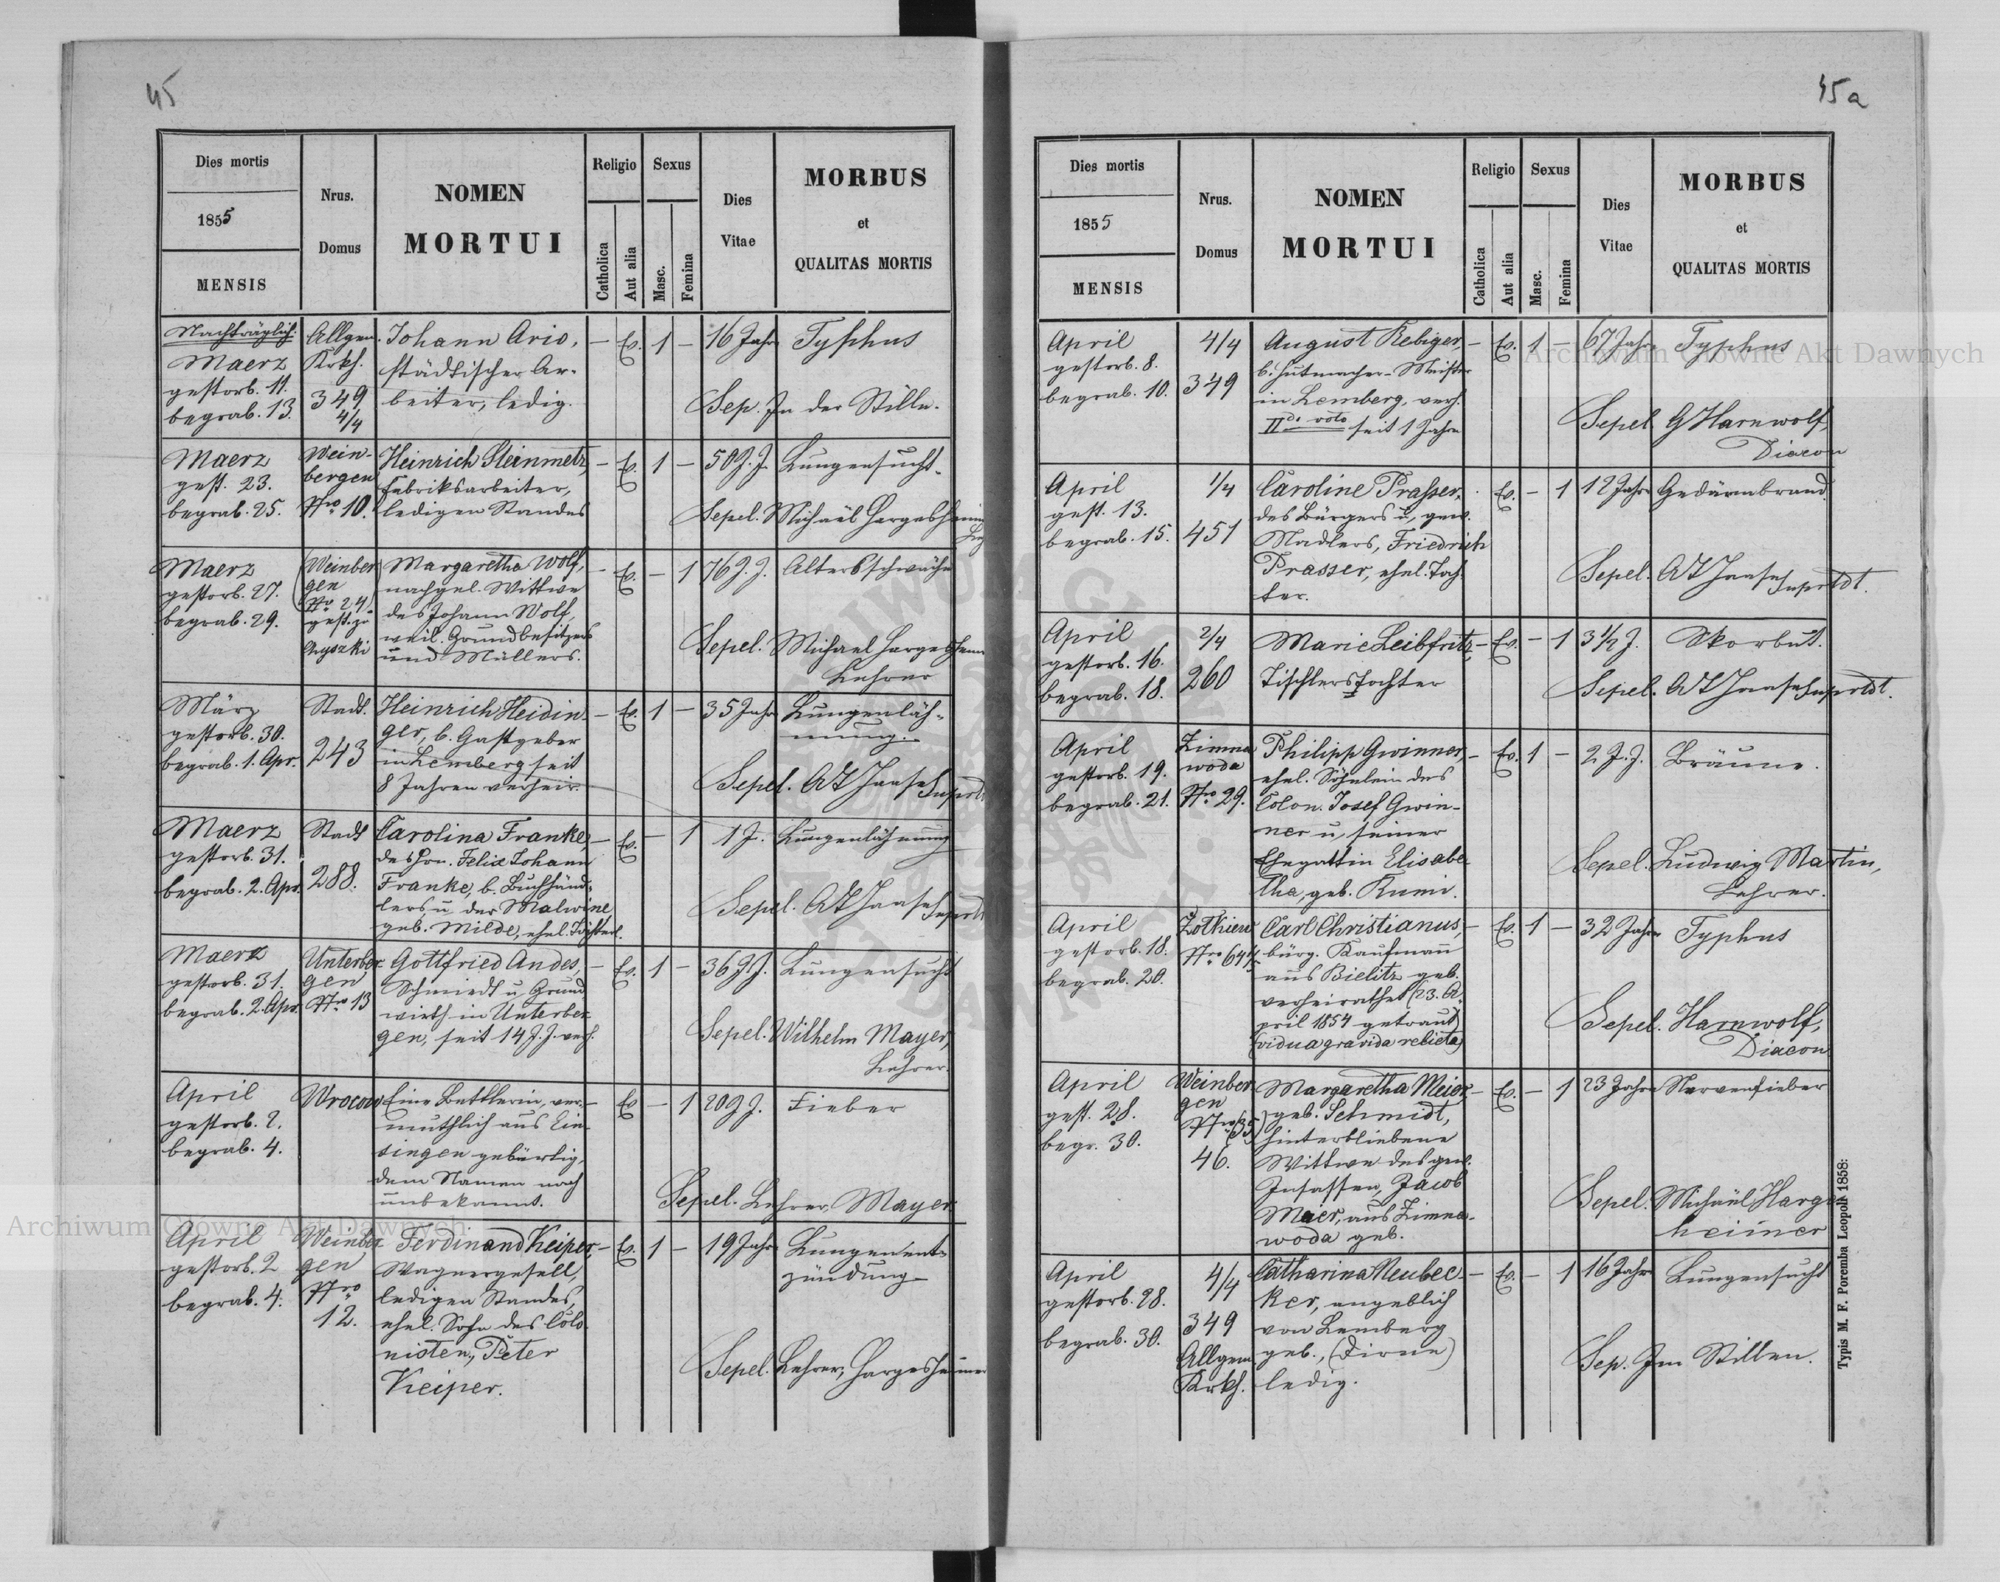 45
Dies mortis
1855
MENSIS
Nrus.
Domus
NOMEN
MORTUI
Religio
Catholica
Aut alia
Sexus
Masc.
Femina
Dies
Vitae
MORBUS
et
QUALITAS MORTIS
Nachträglich.
Maerz
gestorb. 11.
begrab. 13.
Allgem.
Krkh.
349
4/4
Johann Ario,
städtischer Ar-
beiter, ledig.
– Ev. 1 –
16 Jahr
Typhus
Sep. In der Stille.
Maerz
gest. 23.
begrab. 25.
Wein-
bergen
Nro 10.
Heinrich Steinmetz,
Fabriksarbeiter,
ledigen Standes
– Ev. 1 –
50 J. J.
Lungensucht.
Sepel. Michael Hargesheimer
Maerz
gestorb. 27.
begrab. 29.
(Weinber
gen
Nro 24.
gest. zu
Margaretha Wolf,
nachgel. Wittwe
des Johann Wolf,
weil. Grundbesitzers
und Müllers.
– Ev. – 1
76 J. J.
Altersschwäche
Sepel. Michael Hargesheimer
Lehrer
März
gestorb. 30.
begrab. 1. Apr.
Stadt.
243
Heinrich Heidin-
ger, b. Gastgeber
in Lemberg seit
8 Jahren verheir.
– Ev. 1 –
35 Jahr
Lungenläh-
mung.
Sepel. A Z Haase Suprdt
Maerz
gestorb. 31.
begrab. 2. Apr.
Stadt
288.
Carolina Franke,
des Hrn. Felix Johann
Franke, b. Buchhänd-
lers u. der Malwine
geb. Milde, ehel. Töchterl.
– Ev. – 1
1 J.
Lungenlähmung
Sepel. A Z Haase Suprdt
Maerz
gestorb. 31.
begrab. 2. Apr.
Unterber
gen
Nro 13
Gottfried Andes,
Schmiedt u. Grund
wirth in Unterber
gen, seit 14 J. J. verh.
– Ev. 1 –
36 J. J.
Lungensucht
Sepel. Wilhelm Mayer,
Lehrer.
April
gestorb. 2.
begrab. 4.
Wrocow
Eine Bettlerin, ver-
muthlich aus Ein-
singen gebürtig,
dem Namen nach
unbekannt.
– Ev – 1
20 J. J.
Fieber
Sepel. Lehrer, Mayer
April
gestorb. 2
begrab. 4.
Weinber
gen
Nro
12.
Ferdinand Keiper,
Wagnergesell,
ledigen Standes,
ehel. Sohn des Colo-
nisten, Peter
Keiper.
– Ev. 1 –
19 Jahr
Lungenent-
zündung
Sepel. Lehrer, Hargesheimer
45a
Dies mortis
1855
MENSIS
Nrus.
Domus
NOMEN
MORTUI
Religio
Catholica
Aut alia
Sexus
Masc.
Femina
Dies
Vitae
MORBUS
et
QUALITAS MORTIS
April
gestorb. 8.
begrab. 10.
4/4
349
August Rebiger,
b. Hutmacher-Meister
in Lemberg, verh.
IIdo voto seit 1 Jahre
– Ev. 1 –
67 Jahr
Typhus
Sepel G Harnwolf,
Diacon
April
gest. 13.
begrab. 15.
1/4
451
Caroline Prasser,
des Bürgers u. gew.
Nadlers, Friedrich
Prasser, ehel. Toch-
ter.
Ev. – 1
12 Jahre
Gedärmbrand.
Sepel. A Z Haase Suprdt.
April
gestorb. 16.
begrab. 18.
2/4
260
Marie Leibfritz,
Tischlerstochter
– Ev. – 1
3 1/2 J.
Skorbut.
Sepel. A Z Haase Suprdt.
April
gestorb. 19.
begrab. 21.
Zimna
woda
Nro 29.
Philipp Gwinner,
ehel. Söhnlein des
Colon. Josef Gwin-
ner u. seiner
Ehegattin Elisabe-
tha, geb. Kumi.
– Ev. 1 –
2 J. J.
Bräune.
Sepel. Ludwig Martin,
Lehrer.
April
gestorb. 18.
begrab. 20.
Zolkiew
Carl Christianus,
bürg. Kaufmann
aus Bielitz geb.
verheirathet (23. A-
pril 1854 getraut)
(vidua gravida relicta)
– Ev. 1 –
32 Jahre
Typhus
Sepel. Harnwolf,
Diacon
April
gest. 28.
begr. 30.
Weinber
gen
Nro (35)
46.
Margaretha Meier,
geb. Schmidt,
hinterbliebene
Wittwe des gew.
Insassen, Jacob
Maier, aus Zimna-
woda geb.
– Ev. – 1
23 Jahre
Nervenfieber
Sepel. Michaël Harges
heimer
April
gestorb. 28.
begrab. 30.
4/4
349
Allgem
Krkh.
Catharina Neubec-
ker, angeblich
von Lemberg
geb., (Dirne)
ledig.
– Ev. – 1
16 Jahr
Lungensucht
Sep. Im Stillen.
Typis M. F. Poremba Leopoli 1858:
Archiwum Główne Akt Dawnych
Archiwum Główne Akt Dawnych